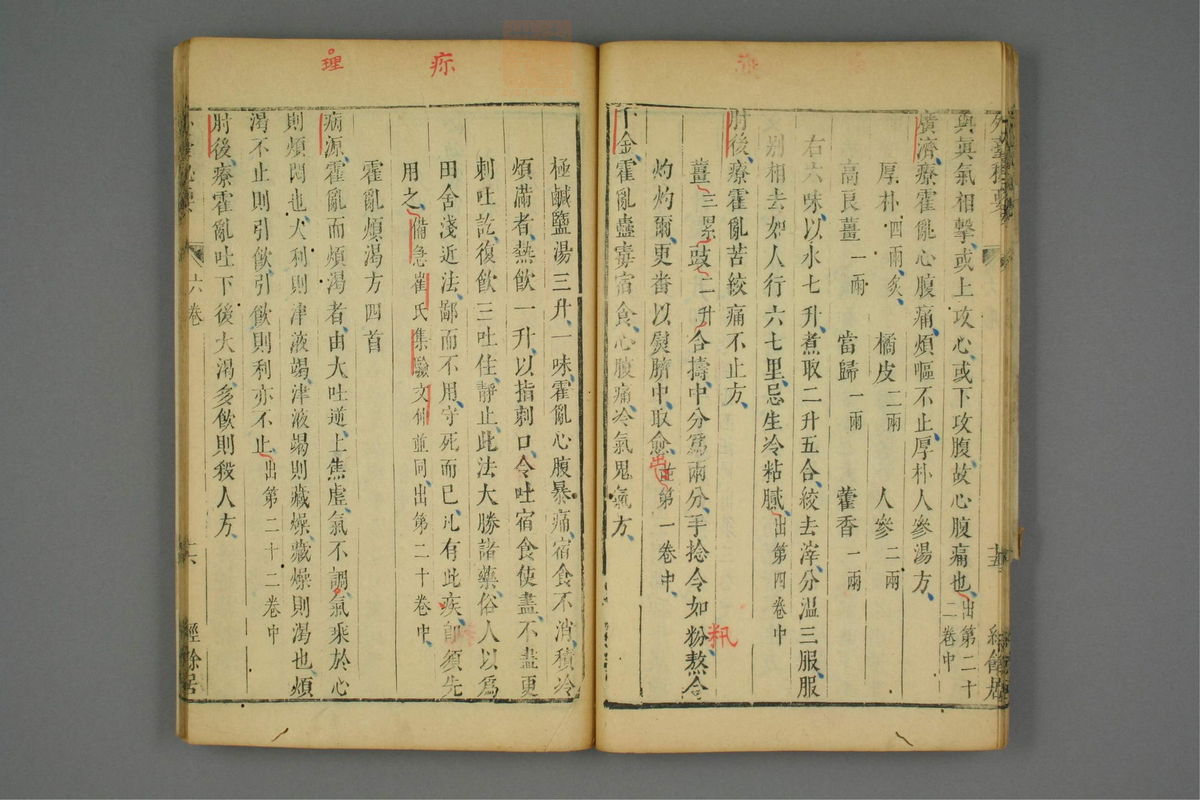 理
疢
外臺秘要
十五
經餘居
與真氣相擊或上攻心或下攻腹故心腹痛也出第二十二卷中
廣濟療霍亂心腹痛煩嘔不止厚朴人參湯方
厚朴四兩炙 橘皮二兩 人參二兩
高良薑一兩 當歸一兩 藿香一兩
右六味以水七升煮取二升五合絞去滓分溫三服服
別相去如人行六七里忌生冷粘膩出第四卷中
肘後療霍亂苦絞痛不止方
薑三累豉二升合擣中分為兩分手捻令如粉熬令
灼灼爾更番以熨臍中取愈並第一卷中
出
籸
千金霍亂蠱毒宿食心腹痛冷氣鬼氣方
極鹹鹽湯三升一味霍亂心腹暴痛宿食不消積冷
煩滿者熱飲一升以指刺口令吐宿食使盡不盡更
刺吐訖復飲三吐住靜止此法大勝諸藥俗人以為
田舍淺近法鄙而不用守死而已凡有此疾即須先
用之備急崔氏集驗文仲並同出第二十卷中
霍亂煩渴方四首
病源霍亂而煩渴者由大吐逆上焦虛氣不調氣乘於心
則煩悶也大利則津液竭津液竭則藏燥藏燥則渴也煩
渴不止則引飲引飲則利亦不止出第二十二卷中
肘後療霍亂吐下後大渴多飲則殺人方
外臺秘要
六卷
十六
經餘居